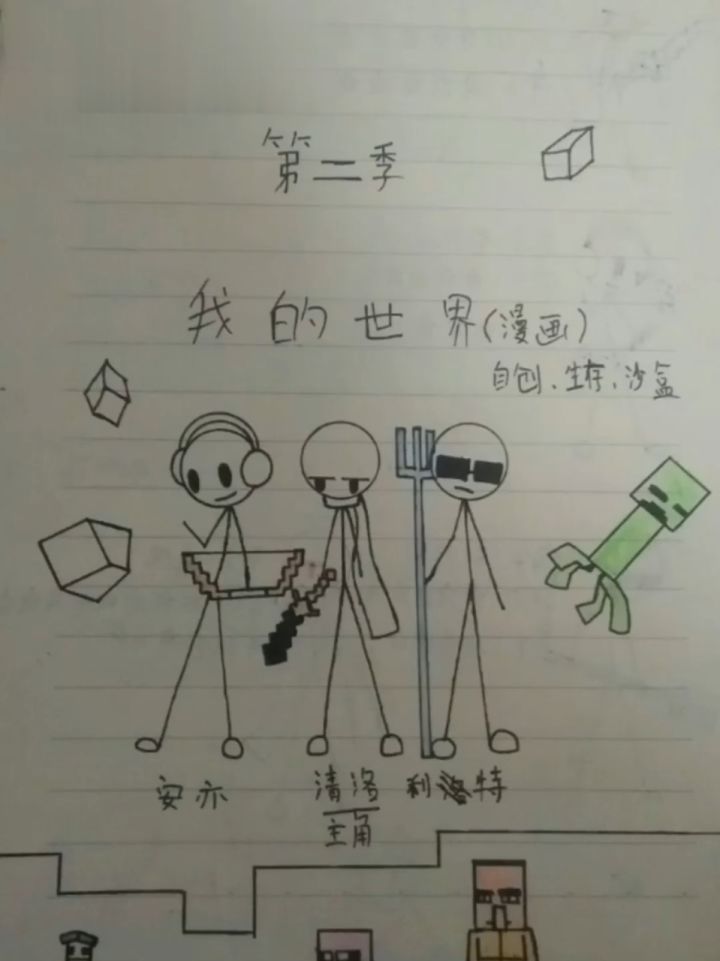 第二季
我的世界(漫画)
自创、生存、沙盒
安亦 清洛 利洛特
主角